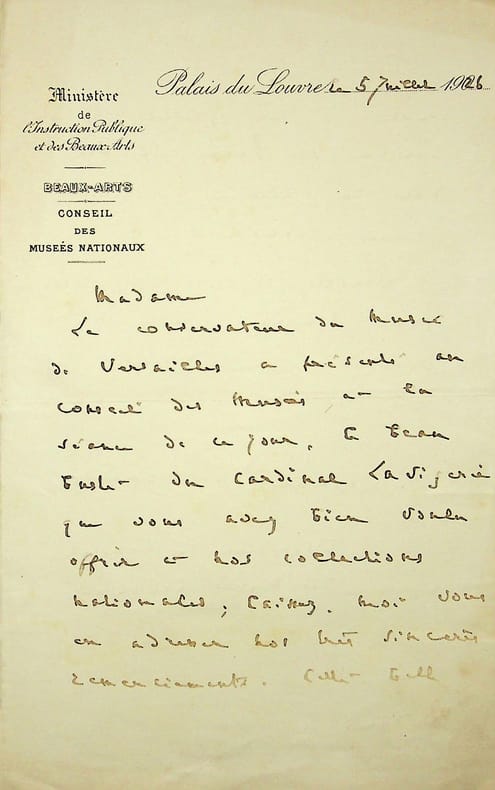 Palais du Louvre, le 5 Juillet 1906
Ministère
de
l'Instruction Publique
et des Beaux-Arts
BEAUX-ARTS
CONSEIL
DES
MUSEÉS NATIONAUX
Madame
Le conservateur du Musée
de Versailles a présenté au
Conseil des Musées à la
séance de ce jour, le beau
buste du Cardinal Lavigerie
que vous avez bien voulu
offrir à nos collections
nationales ; laissez-moi vous
en adresser nos très sincères
remerciements. Cette belle